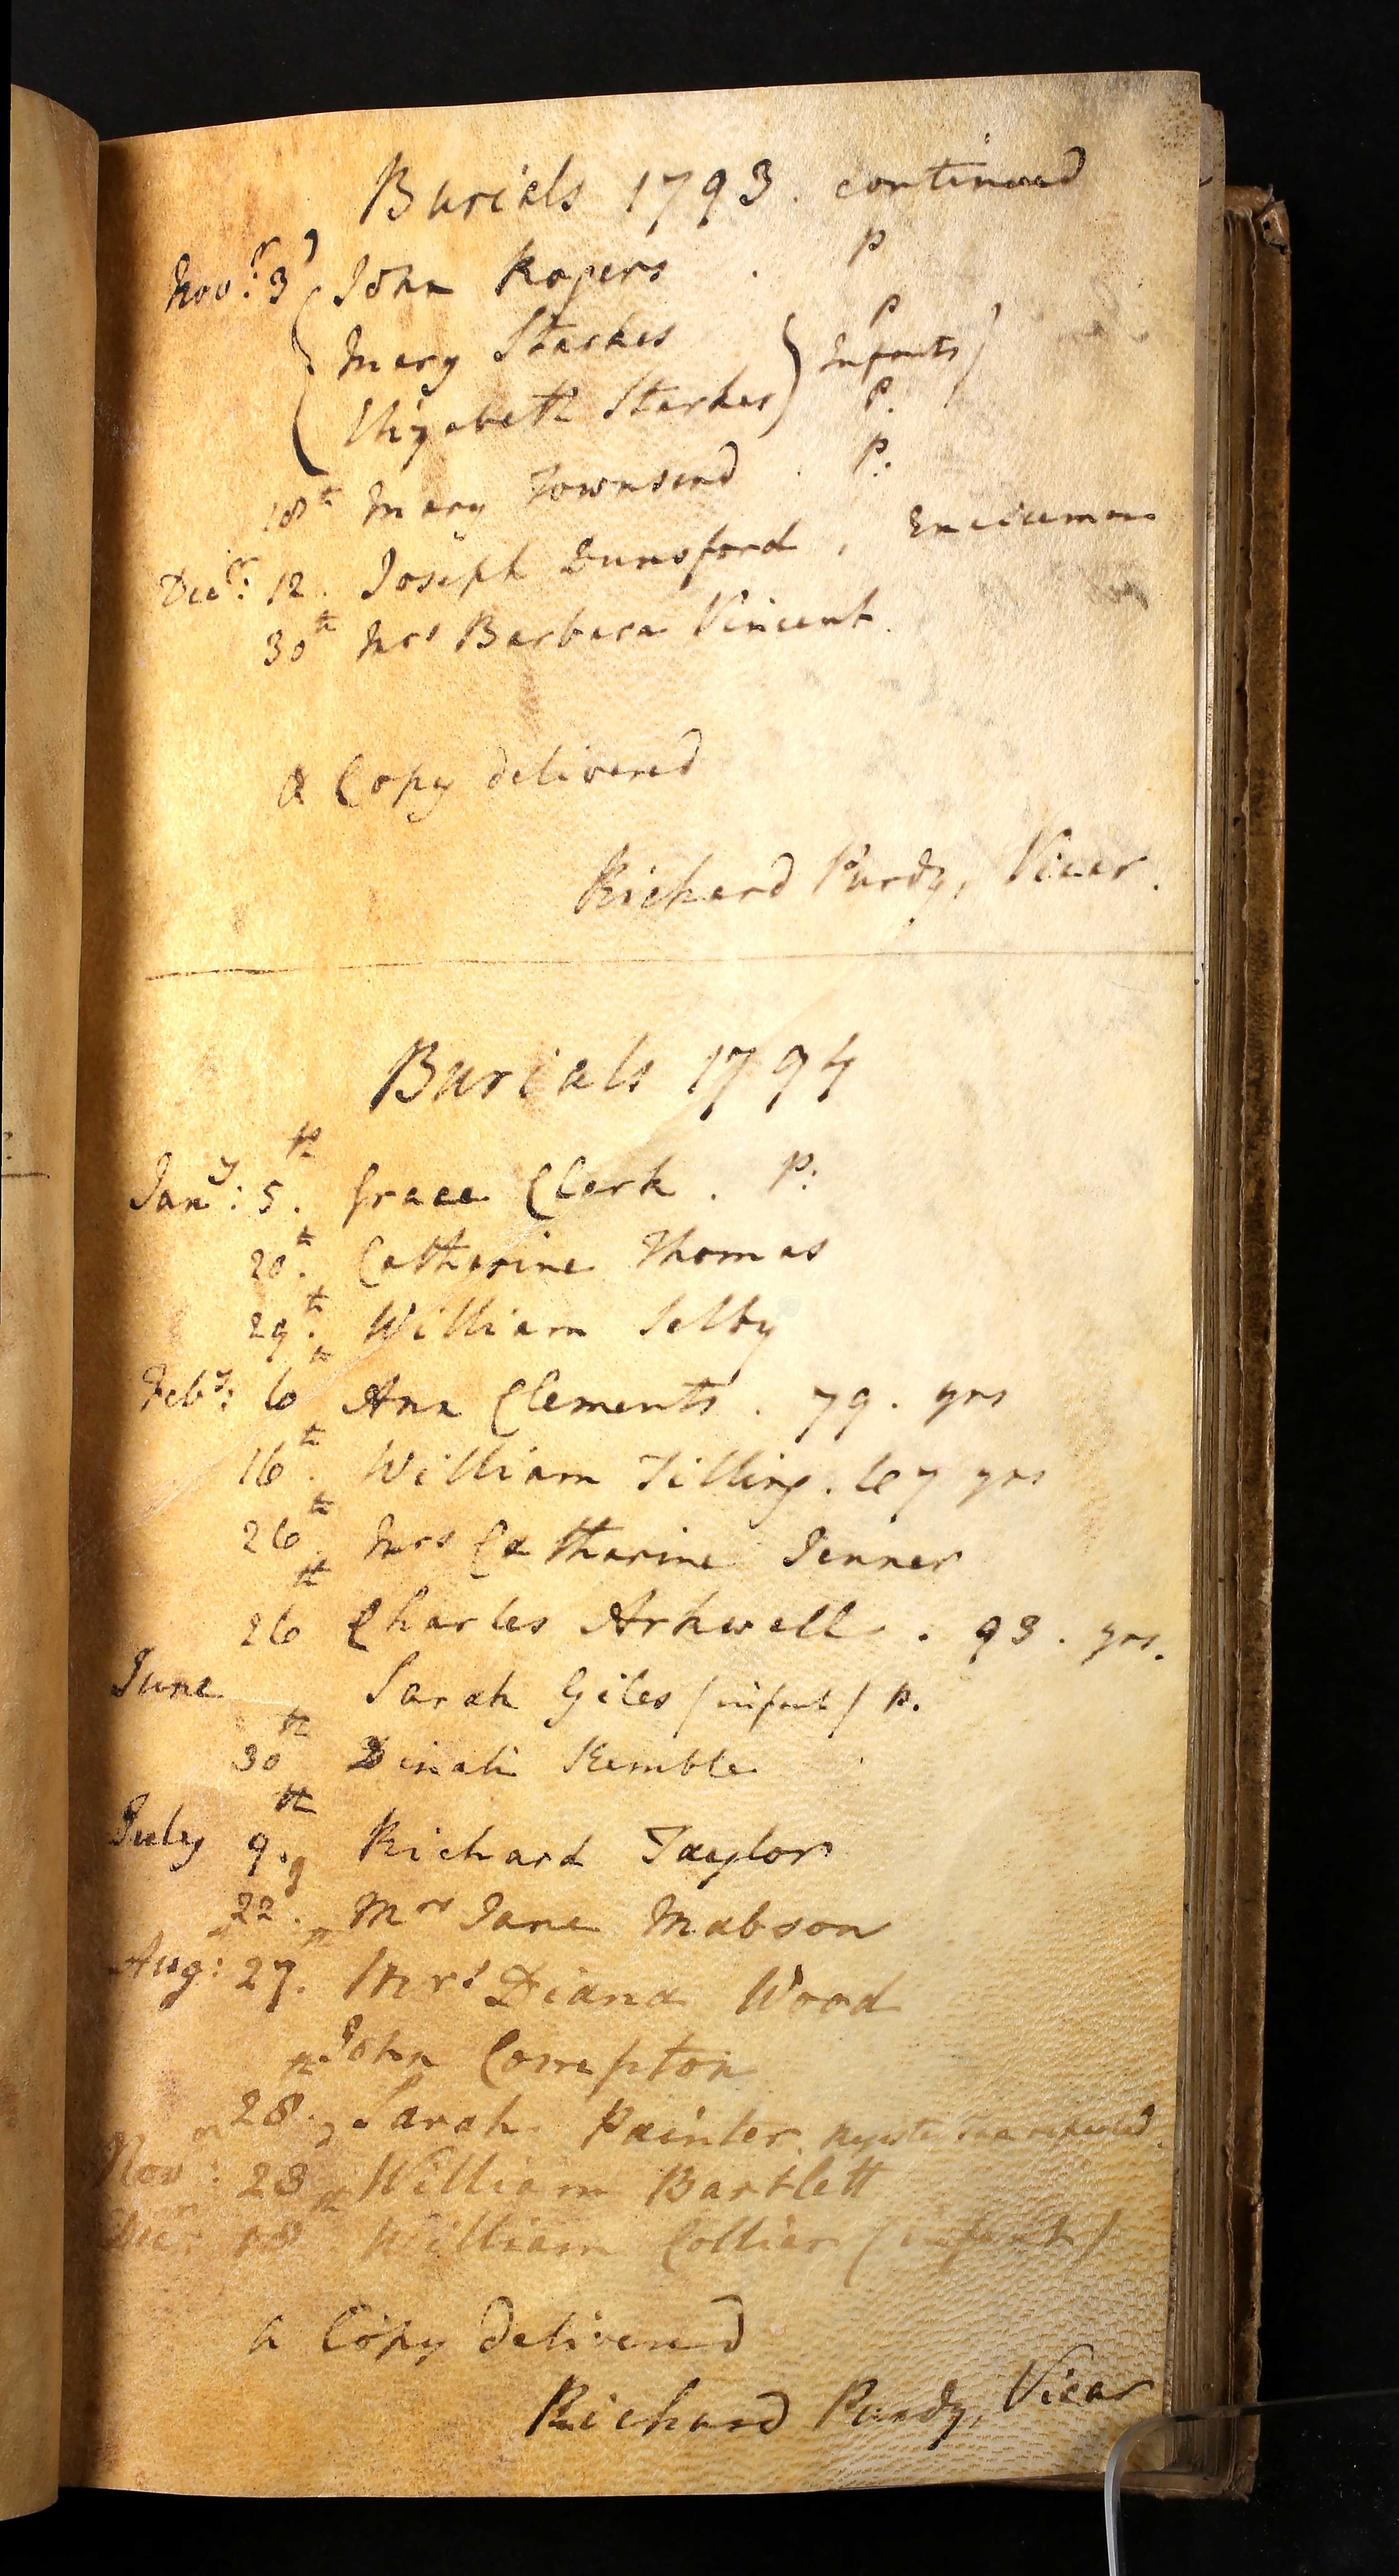 Burials 1793. continued
Novr: 3d John Rogers . P
Mary Starkes P
Infants
Elizabeth Starkes P.
18th Mary Townsend . P:
Decr: 12. Joseph Dunsford,
30th Mrs Barbara Vincent.
A Copy delivered
Richard Purdy, Vicar.
Burials 1794
Jany: 5th. Grace Clark. P:
20th. Catharine Thomas
29th. William Selby
Feby: 6th Ann Clements. 79. yrs
16th. William Tilling. 67 yrs
26th. Mrs Catharine Jenner
26th Charles Arkwell. 93. yrs.
June Sarah Giles (infant) p.
30th Dinah Kemble
July 9th. Richard Taylor
22d. Mrs Jane Mabson
Aug: 27th. Mrs Diana Wood
John Compton
28th. Sarah Painter.
Novr: 23d William Bartlett
Decr 18th William Collier (infant)
A Copy delivered
Richard Purdy, Vicar